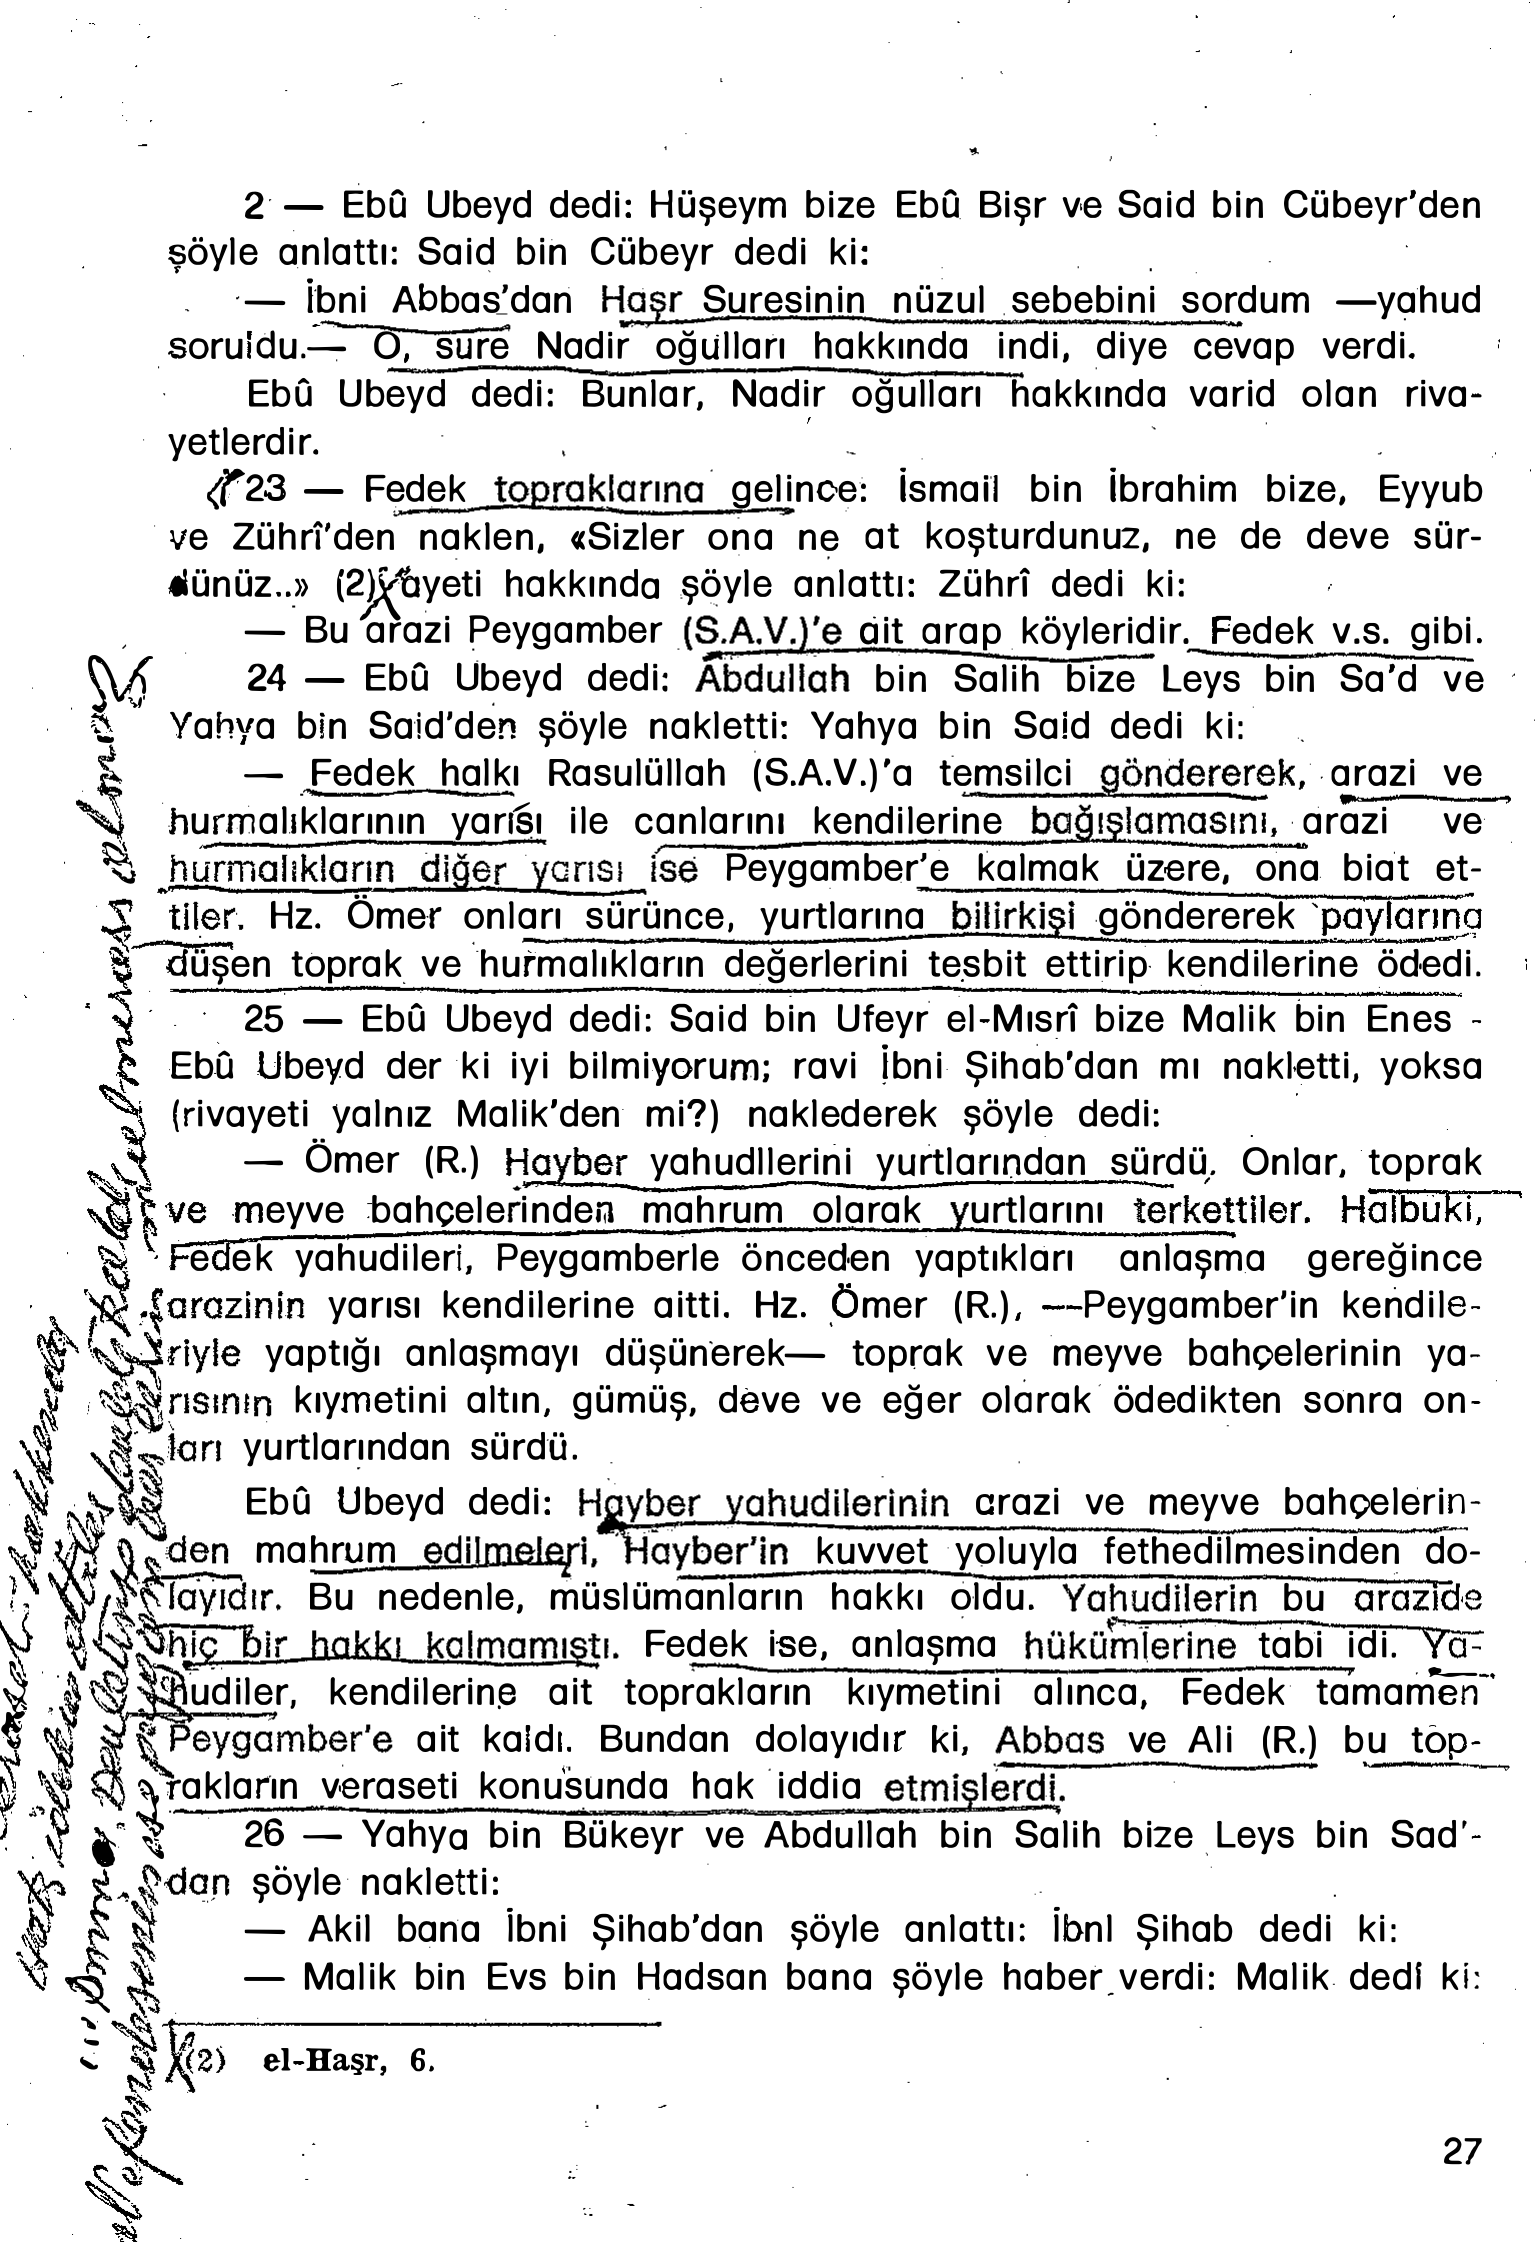 2 — Ebû Ubeyd dedi: Hüşeym bize Ebû Bişr ve Said bin Cübeyr'den
şöyle anlattı: Said bin Cübeyr dedi ki:
— İbni Abbas'dan Haşr Suresinin nüzul sebebini sordum —yahud
soruldu.— O, sure Nadir oğulları hakkında indi, diye cevap verdi.
Ebû Ubeyd dedi: Bunlar, Nadir oğulları hakkında varid olan riva-
yetlerdir.
23 — Fedek topraklarına gelince: İsmail bin İbrahim bize, Eyyub
ve Zührî'den naklen, «Sizler ona ne at koşturdunuz, ne de deve sür-
dünüz..» (2) ayeti hakkında şöyle anlattı: Zührî dedi ki:
— Bu arazi Peygamber (S.A.V.)'e ait arap köyleridir. Fedek v.s. gibi.
24 — Ebû Ubeyd dedi: Abdullah bin Salih bize Leys bin Sa'd ve
Yahya bin Said'den şöyle nakletti: Yahya bin Said dedi ki:
— Fedek halkı Rasulüllah (S.A.V.)'a temsilci göndererek, arazi ve
hurmalıklarının yarısı ile canlarını kendilerine bağışlamasını, arazi ve
hurmalıkların diğer yarısı ise Peygamber'e kalmak üzere, ona biat et-
tiler. Hz. Ömer onları sürünce, yurtlarına bilirkişi göndererek paylarına
düşen toprak ve hurmalıkların değerlerini tesbit ettirip kendilerine ödedi.
25 — Ebû Ubeyd dedi: Said bin Ufeyr el-Mısrî bize Malik bin Enes -
Ebû Ubeyd der ki iyi bilmiyorum; ravi İbni Şihab'dan mı nakletti, yoksa
(rivayeti yalnız Malik'den mi?) naklederek şöyle dedi:
— Ömer (R.) Hayber yahudilerini yurtlarından sürdü. Onlar, toprak
ve meyve bahçelerinden mahrum olarak yurtlarını terkettiler. Halbuki,
Fedek yahudileri, Peygamberle önceden yaptıkları anlaşma gereğince
arazinin yarısı kendilerine aitti. Hz. Ömer (R.), —Peygamber'in kendile-
riyle yaptığı anlaşmayı düşünerek— toprak ve meyve bahçelerinin ya-
rısının kıymetini altın, gümüş, deve ve eğer olarak ödedikten sonra on-
ları yurtlarından sürdü.
Ebû Ubeyd dedi: Hayber yahudilerinin arazi ve meyve bahçelerin-
den mahrum edilmeleri, Hayber'in kuvvet yoluyla fethedilmesinden do-
layıdır. Bu nedenle, müslümanların hakkı oldu. Yahudilerin bu arazide
hiç bir hakkı kalmamıştı. Fedek ise, anlaşma hükümlerine tabi idi. Ya-
hudiler, kendilerine ait toprakların kıymetini alınca, Fedek tamamen
Peygamber'e ait kaldı. Bundan dolayıdır ki, Abbas ve Ali (R.) bu top-
rakların veraseti konusunda hak iddia etmişlerdi.
26 — Yahya bin Bükeyr ve Abdullah bin Salih bize Leys bin Sad'-
dan şöyle nakletti:
— Akil bana İbni Şihab'dan şöyle anlattı: İbni Şihab dedi ki:
— Malik bin Evs bin Hadsan bana şöyle haber verdi: Malik dedi ki:
(2) el-Haşr, 6.
27